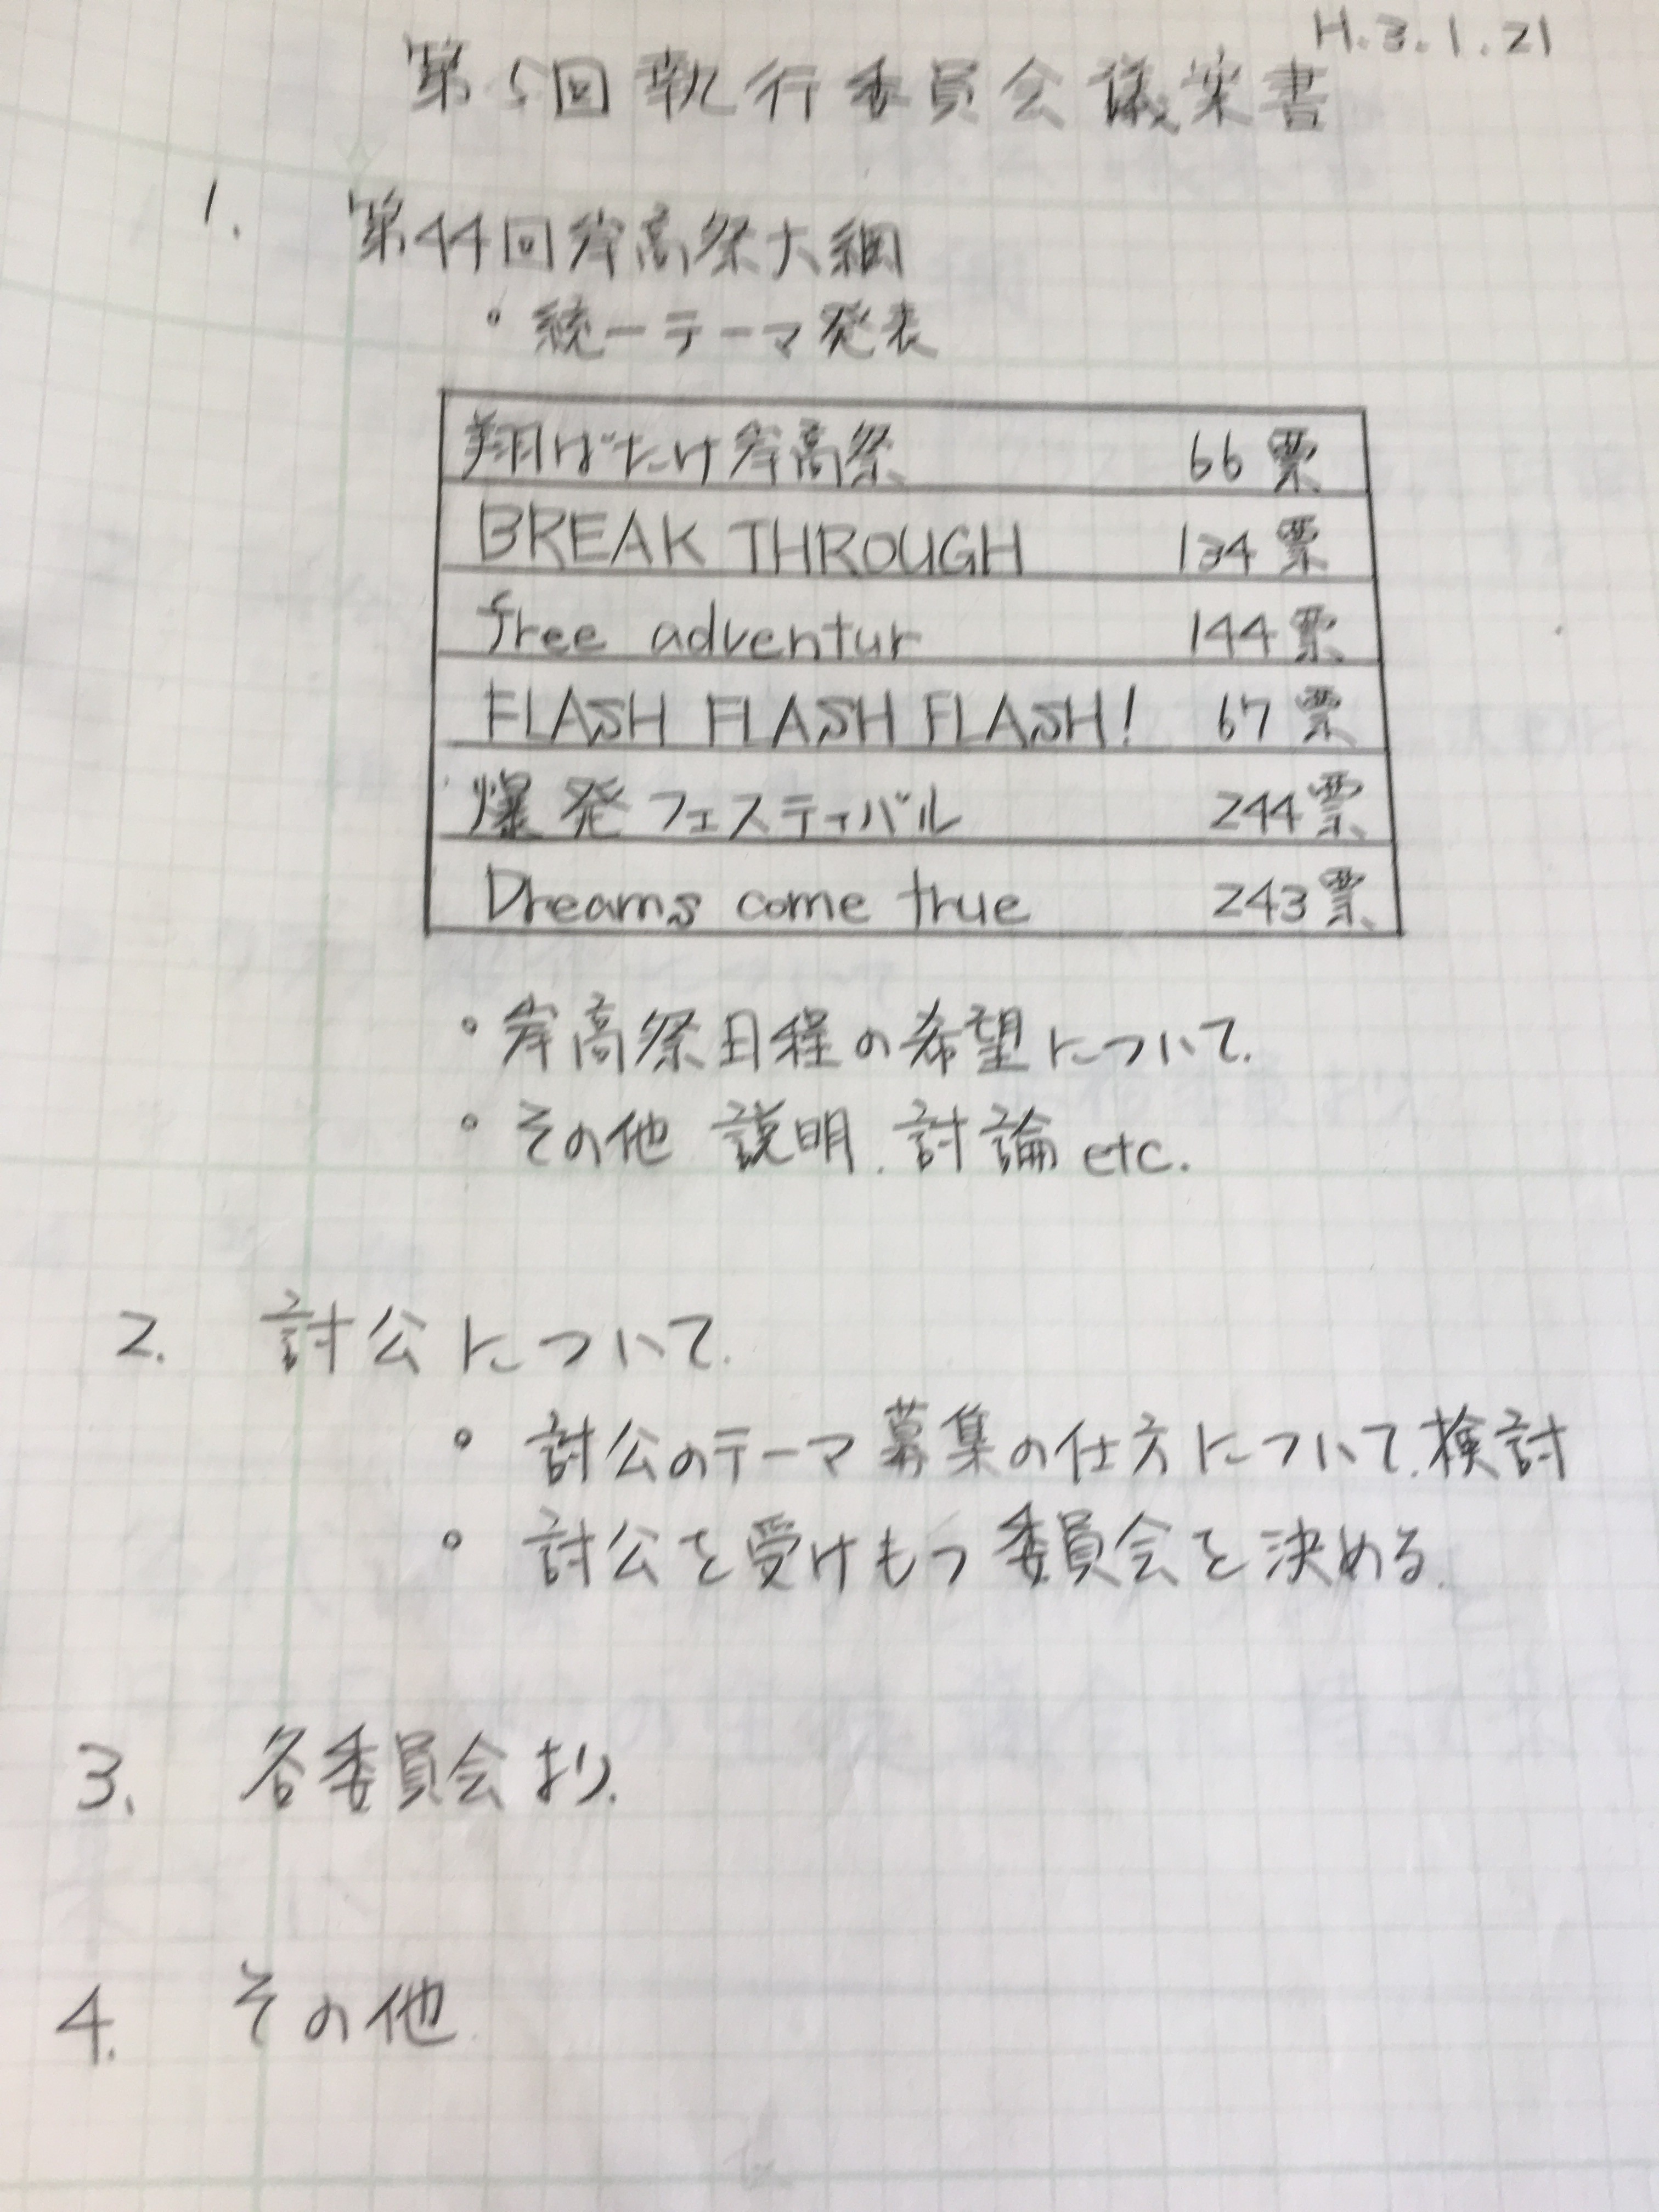 H.3.1.21
第5回執行委員会議案書
1. 第44回岸高祭大綱
・統一テーマ発表
翔ばたけ岸高祭 66票
BREAK THROUGH 134票
free adventur 144票
FLASH FLASH FLASH! 67票
爆発フェスティバル 244票
Dreams come true 243票
・岸高祭日程の希望について.
・その他 説明.討論 etc.
2. 討公について.
・討公のテーマ募集の仕方について.検討
・討公を受けもつ委員会を決める.
3. 各委員会より.
4. その他.